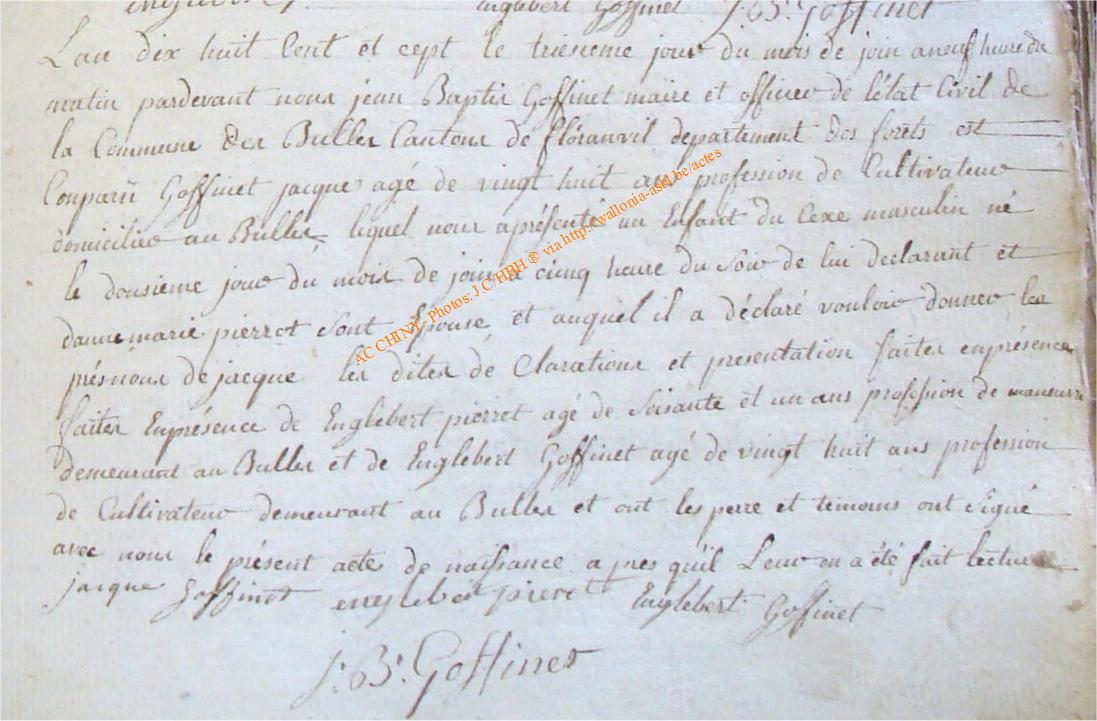 Englebert Goffinet J. B. Goffinet
L'an dix huit Cent et cept le trieseme jour du mois de join a neuf heure du
matin pardevant nous jean Baptis Goffinet maire et officier de l'état Civil de
la Commune des Bulles Cantons de floranvil departement des forets est
Comparu Goffinet jacque agé de vingt huit ans profession de Cultivateur
domicilié au Bulles, lequel nous a présenté un Enfant du Cexe masculin né
le dousième jour du mois de join a cinq heure du Soir de lui declarant et
danne marie pierrot Sont Epouse et auquel il a déclaré vouloir donner les
prénons de jacque les dites dé Clarations et presentation faites enprésence
faites Enprésence de Englebert pierret agé de Soisante et un ans profession de maneuvre
demeurant au Bulles et de Englebert Goffinet agé de vingt huit ans profession
de Cultivateur demeurant au Bulles et ont les perre et temoins ont Signé
avec nous le présent acte de naissance a pres qu'il Leur en a été fait lecture
jacque Goffinet englebert pieret Englebert Goffinet
J. B. Goffinet
AC CHINY, Photos: J.C HBH ® via http://wallonia-asbl.be/actes